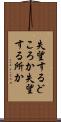 失望するど
ころか失望
する所か